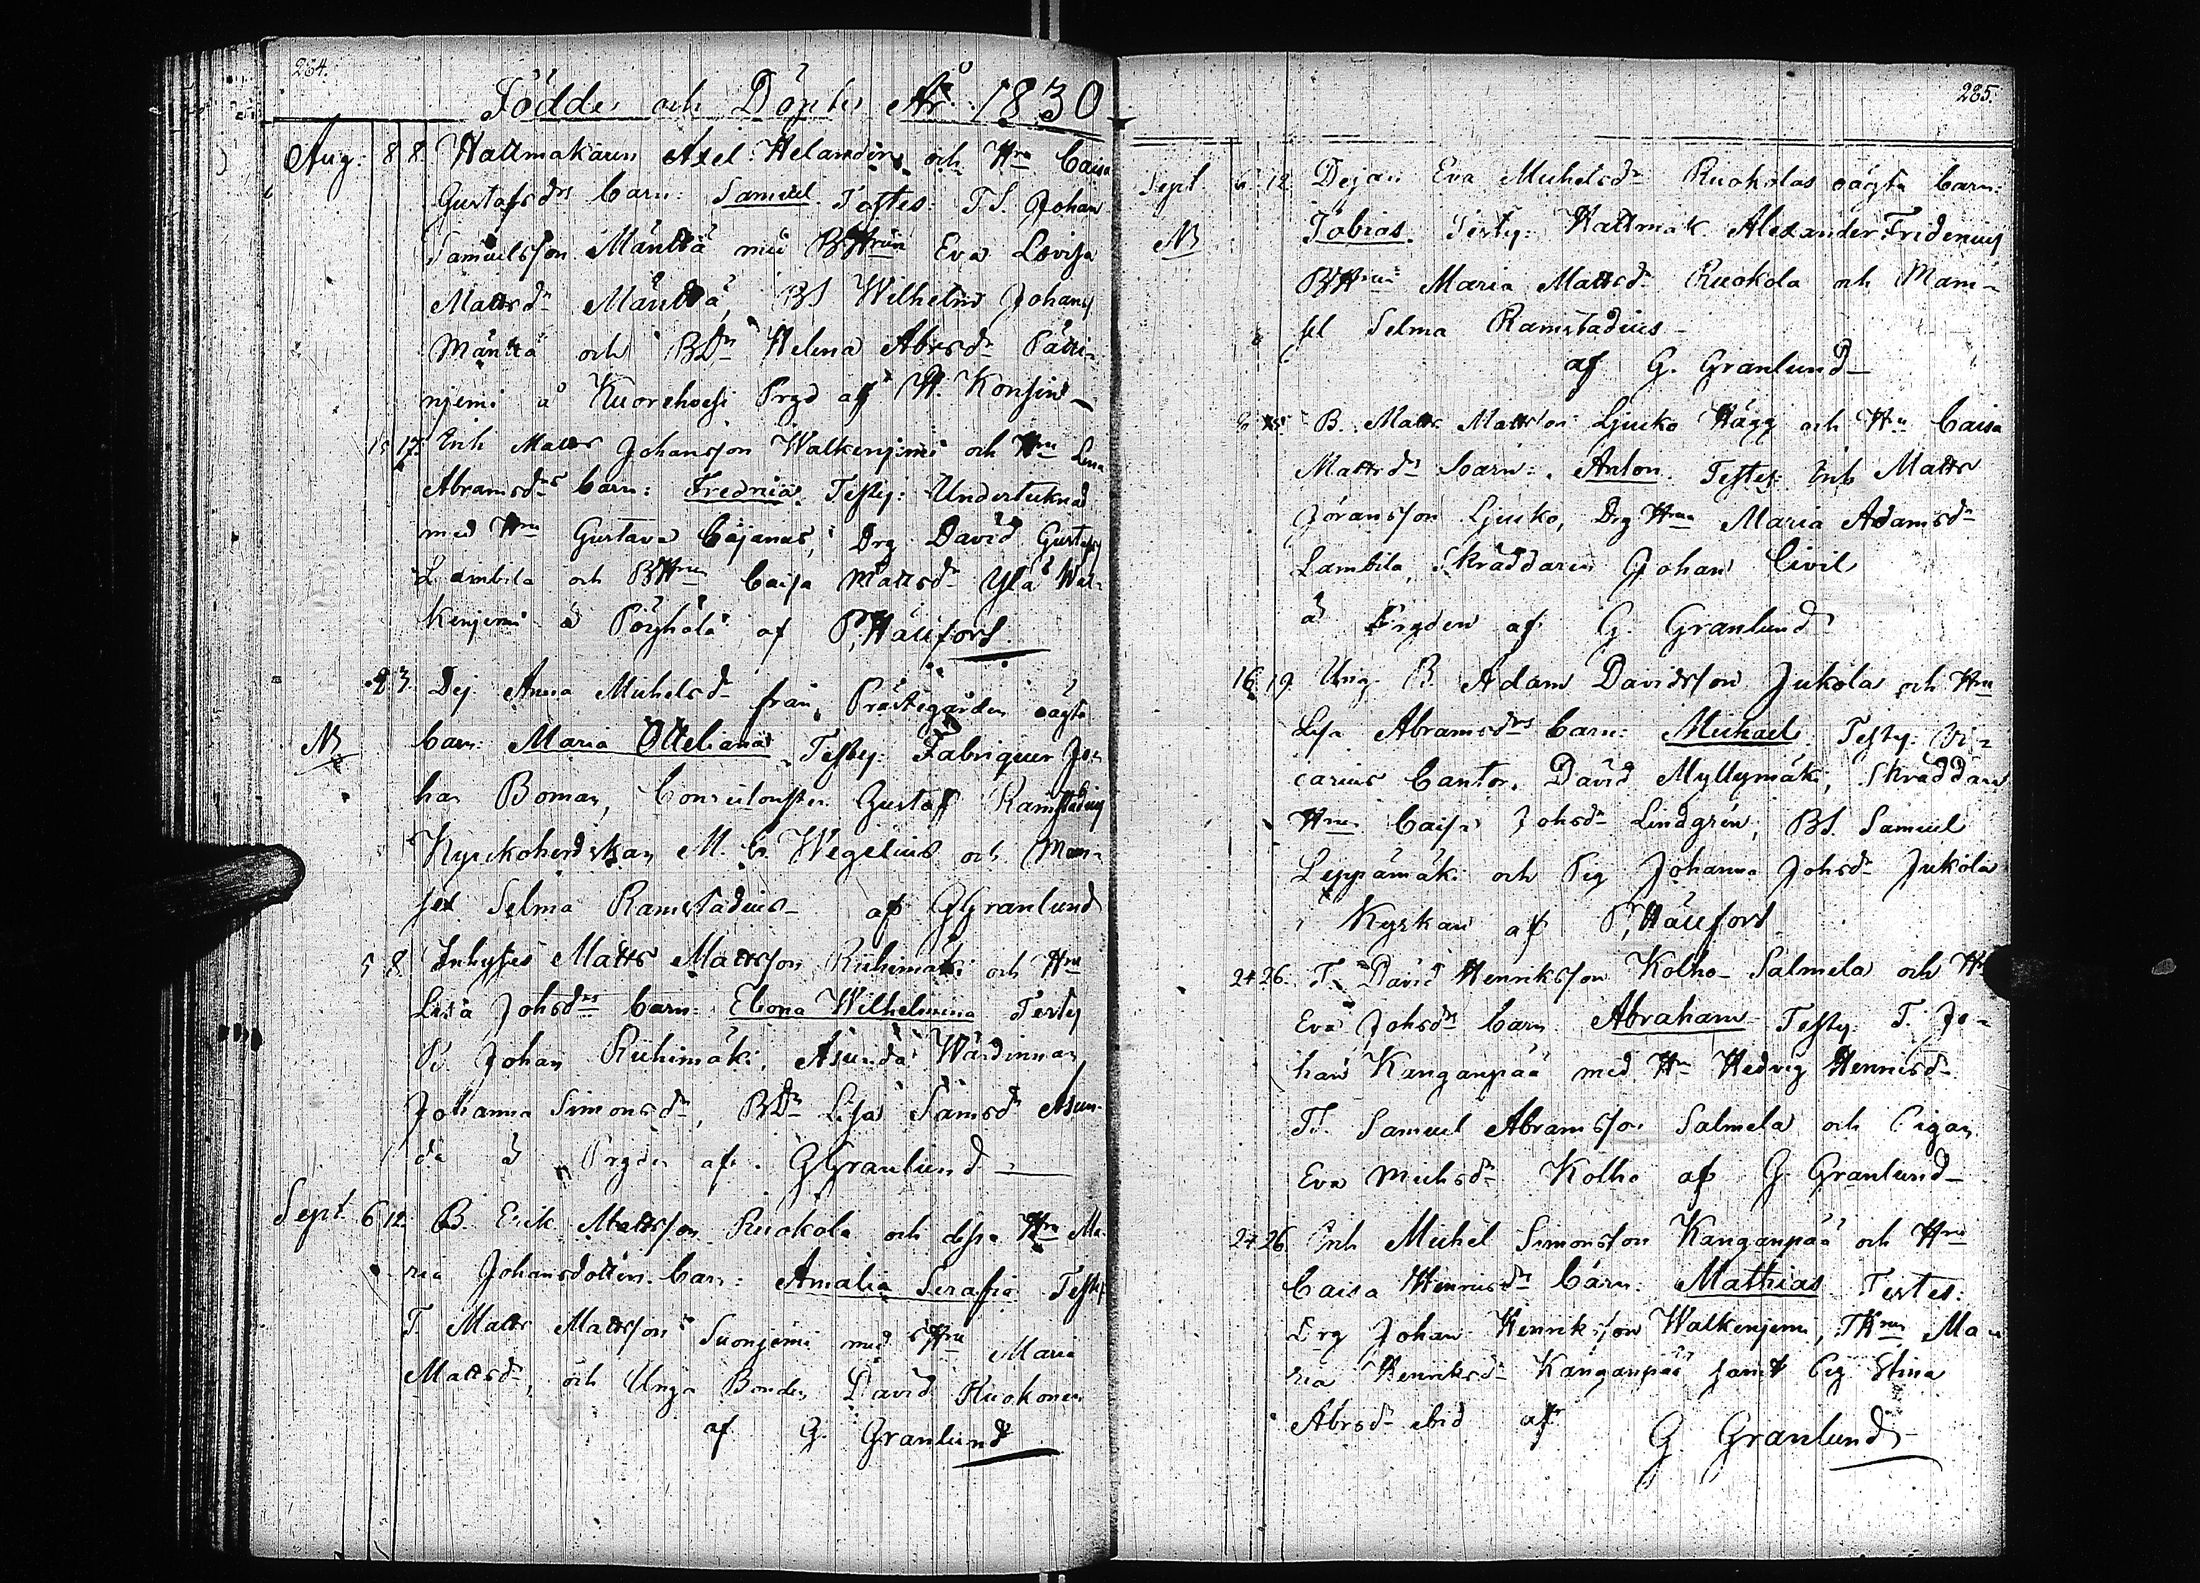 284.
Födde och Döpte År 1830
Aug: 8 8. Hattmakaren Axel Helander och Hru Caisa
Gustafsdrs barn: Samuel. Testes: TS. Johan
Samuelsson Mänttä med BHrun Eva Lovisa
Mattsdr Mänttä, BS Wilhelm Johans
Mänttä och BDn Helena Abrsdr Pätti-
njemi å Kuorehvesi Prgd af H. Konsin
15 17. Inh Matts Johansson Walkenjemi och Hru Lena
Abramsdrs barn: Fredrica. Testes: Undertecknad
med Hru Gustava Cajanus, Drg David Gustafss
Lambila och BHrun Caisa Mattsdr Ylä Wal-
kenjemi å Pöyhölä af P. Hällfors
23. Dej Anna Michelsdr från Prästegården oägta
NB barn: Maria Otteliana. Testes: Fabriqueur Jo-
han Boman, Gustaf Ramstadius
Kyrckoherdskan M. C. Wegelius och Mam-
sel Selma Ramstadius af G Granlund
5 8. Inhyses Matts Mattsson Riihimäki och Hru
Lisa Johsdrs barn: Ebona Wilhelmina Testes
B. Johan Riihimäki, Asunda Wärdinnan
Johanna Simonsdr, BDn Lisa Samsdr Asun-
da å Prgden af G Granlund
Sept 6 12. B. Erik Mattsson Ruokola och dess Hru Ma-
ria Johansdotters barn: Amalia Serafia Testes
T. Matts Mattsson Suonjemi med Hru Maria
Mattsdr, och Unga Bonden David Ruokonen
af G. Granlund
285.
Sept 6 12 Dejan Eva Michelsdr Ruokolas oägta barn:
NB Tobias. Testes: Hattmak. Alexander Fridenius
BHrun Maria Mattsdr Ruokola och Mam-
sel Selma Ramstadius
af G. Granlund
8 B. Matts Mattsson Ljuko Hägg och Hru Caisa
Mattsdrs barn: Anton. Testes: Inh Matts
Jöransson Ljuko, Drg Hrun Maria Adamsdr
Lambila, Skräddaren Johan Civil
å Prgden af G. Granlund
16 19. Ung B. Adam Davidsson Jukola och Hru
Lisa Abramsdrs barn: Michael. Testes: Vi-
carius Cantor. David Myllymäki, Skräddare
Hrun Caisa Johsdr Lindgrén, BS. Samuel
Leppämäki och Pig Johanna Johsdr Jukola
i Kyrkan af P. Hällfors
24 26. T. David Henriksson Kolho-Salmela och Hru
Eva Johsdrs barn Abraham Testes: T. Jo-
han Kanganpää med Hru Hedvig Henricsdr
TS. Samuel Abramsson Salmela och Pigan
Eva Michsdr Kolho af G Granlund
24 26. Inh Michel Simonsson Kanganpää och Hru
Caisa Henricsdrs barn: Mathias Testes:
Drg Johan Henriksson Walkenjemi, THrun Ma-
ria Henriksdr Kanganpää samt Pig Stina
Abrsdr ibid af G Granlund